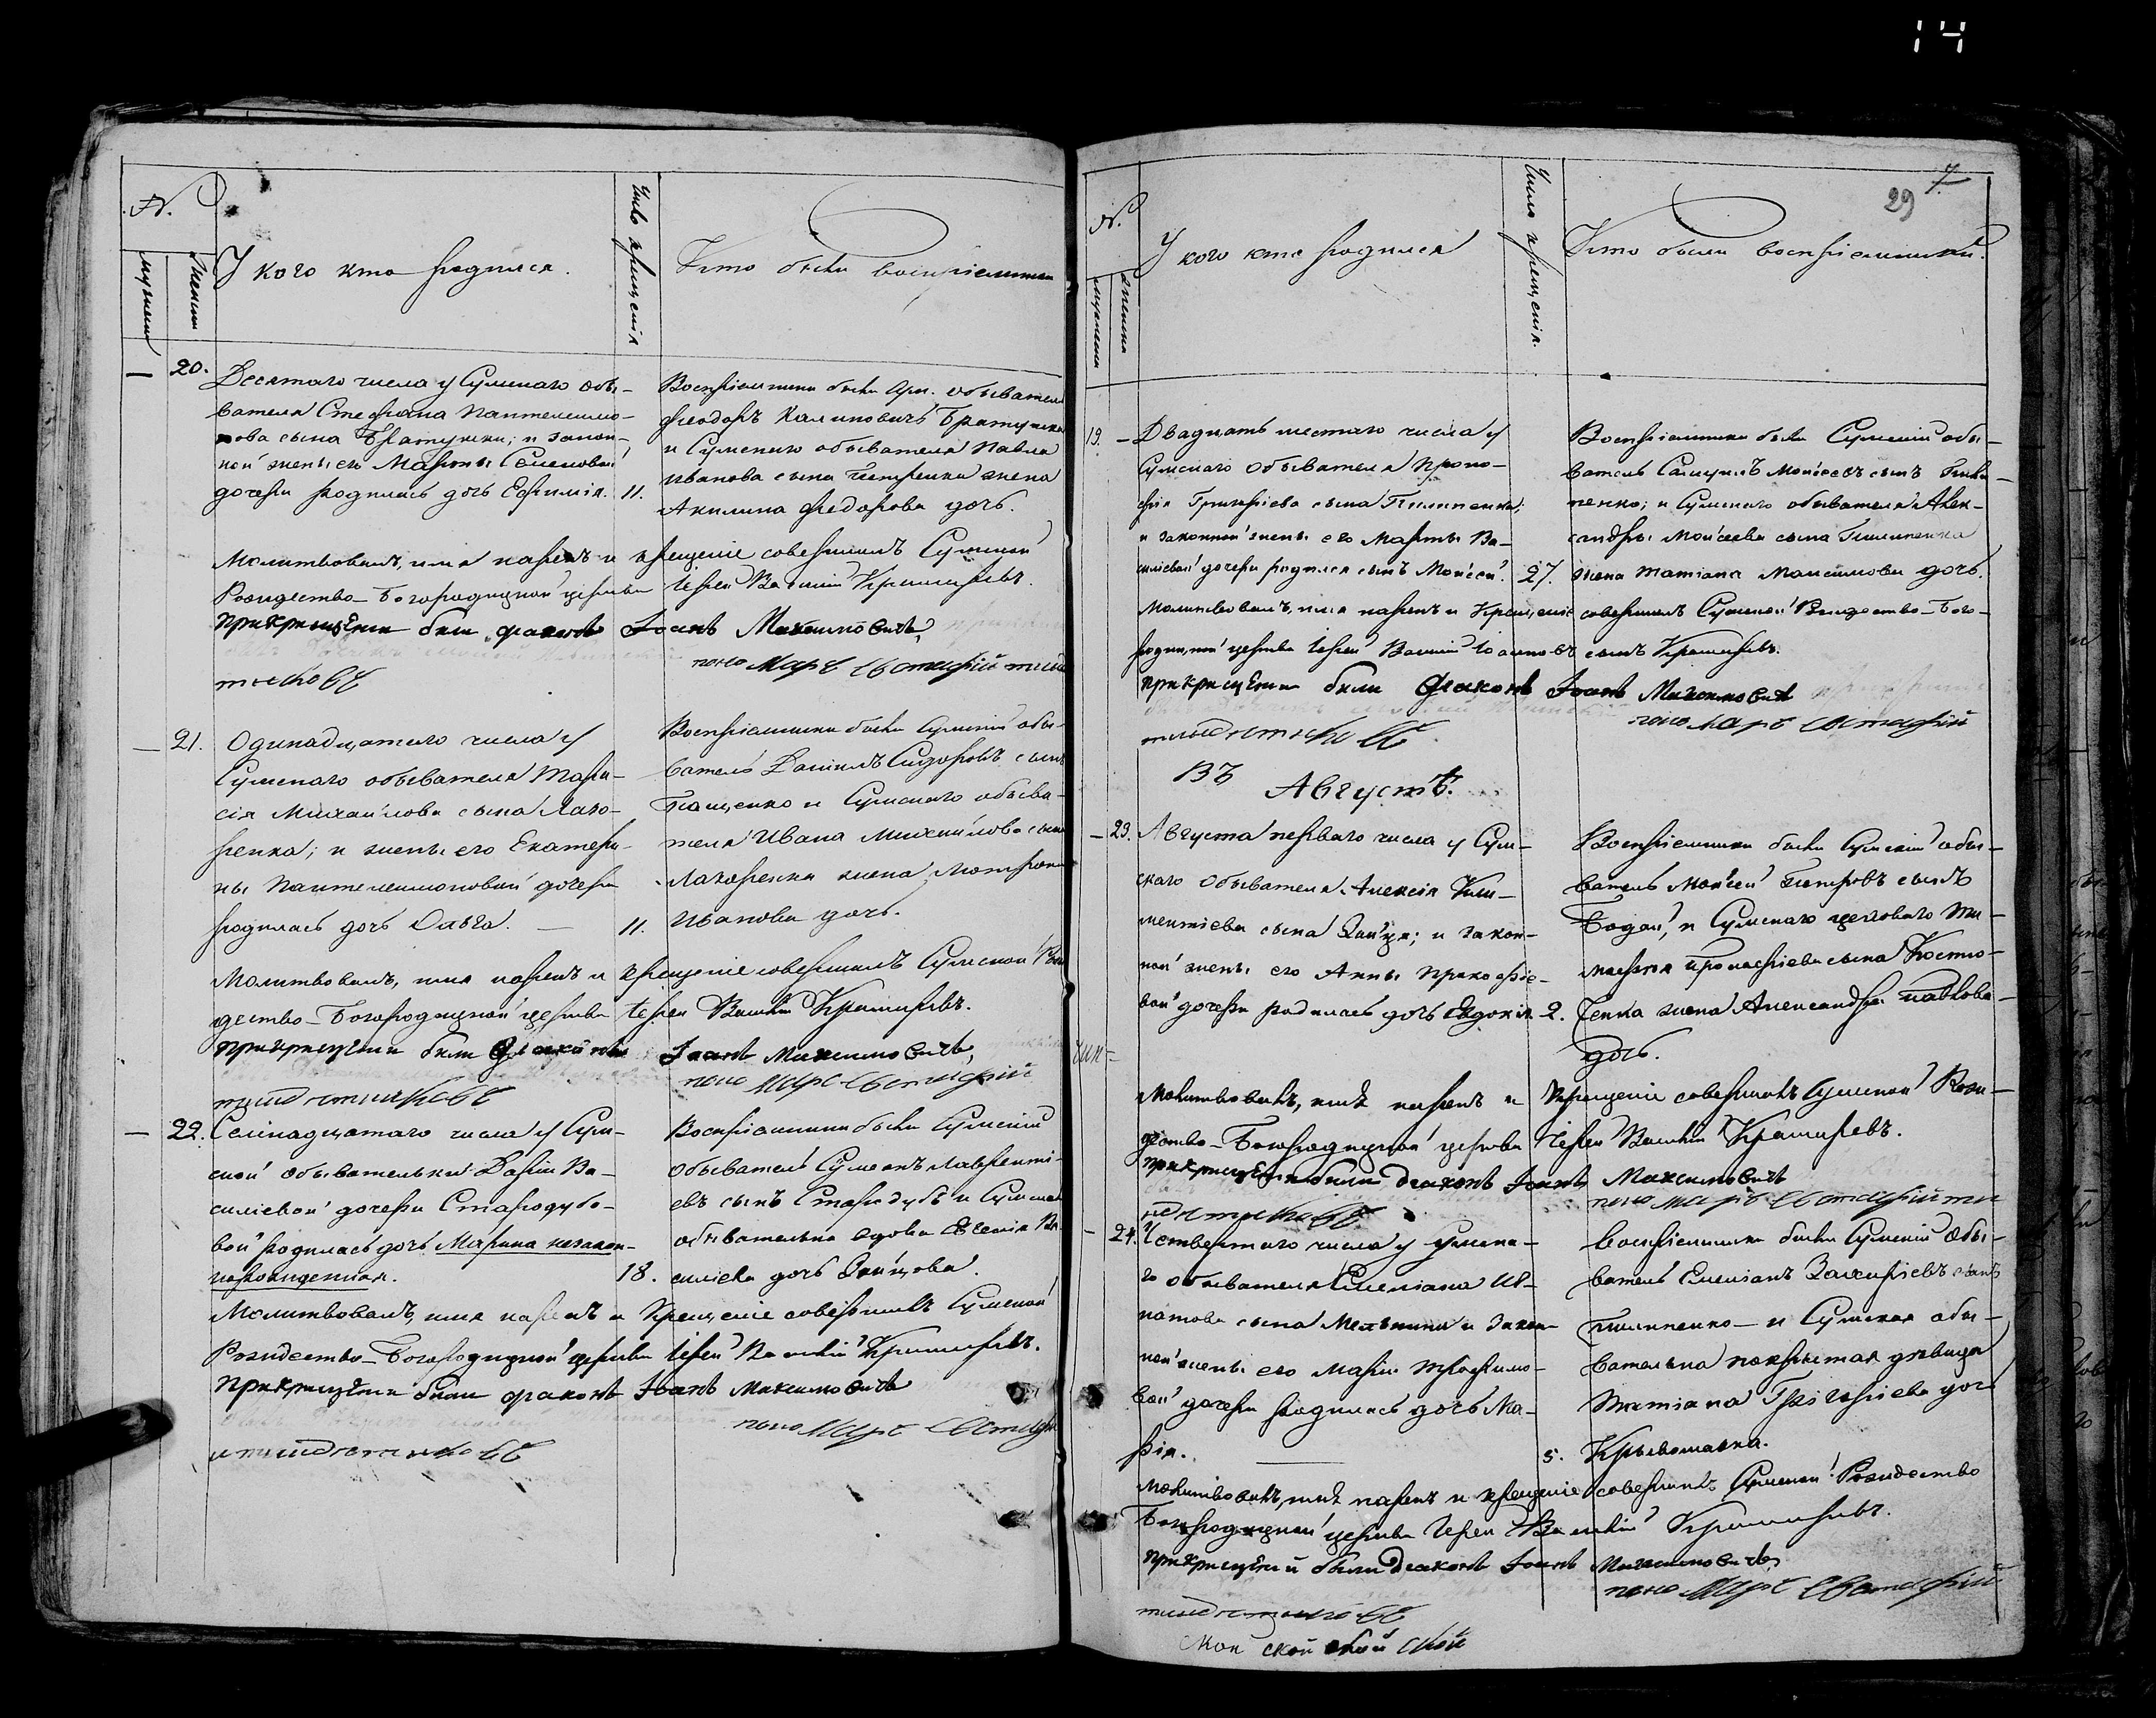 14
№.
мужеска
женска
У кого кто родился.
Число крещенія
Кто были воспріемники
— 20.
Десятаго числа у Сумскаго обы-
вателя Стефана Пантелеимо-
нова сына Братушки; и закон-
ной жены его Марфы Семеновой
дочери родилась дочь Ефимія. 11.
Воспріемники были обыватель
Феодоръ Калиновичъ Братушка
и Сумскаго обывателя Павла
Иванова сына Петренка жена
Акилина Федорова дочь.
Молитвовалъ, имя нарекъ и крещеніе совершилъ Сумской
Рождество-Богородицкой церкви Іерей Василій
при крещении были диаконъ Іоанъ Максимовичъ,
поно Марь Евстафий
— 21.
Одинадцатаго числа у
Сумскаго обывателя Тара-
сія Михайлова сына Лазо-
ренка; и жены его Екатери-
ны Пантелеимоновой дочери
родилась дочь Ольга. — 11.
Воспріемники были Сумскій обы-
ватель Даніилъ Сидоровъ сынъ
Пащенко и Сумскаго обыва-
теля Ивана Михайлова сына
Лазоренка жена Мотрона
Иванова дочь.
Молитвовалъ, имя нарекъ и крещеніе совершилъ Сумской Рож
дество-Богородицкой церкви Іерей Василій
при крещении были диаконъ Іоанъ Максимовичъ,
поно Марь Евстафий
— 22.
Семнадцатаго числа у Сум-
ской обывательки Даріи Ва-
силіевой дочери Стародубо-
вой родилась дочь Марина незакон-
норожденная. 18.
Воспріемники были Сумскій
обыватель Сумеонъ Лавренті-
евъ сынъ Стародубъ и Сумская
обывателька вдова Евгенія Ва-
силіева дочь Зайцова.
Молитвовалъ, имя нарекъ и Крещеніе совершилъ Сумской
Рождество-Богородицкой церкви Іерей Василій
при крещении были диаконъ Іоанъ Максимовичъ
поно Марь Евстафи
29 7
№.
мужеска
женска
У кого кто родился
Число крещенія.
Кто были воспріемники.
19. —
Двадцать шестаго числа у
Сумскаго Обывателя Проко-
фія Григоріева сына Пилипенка;
и законной жены его Марфы Ва-
силіевой дочери родился сынъ Моисей. 27.
Воспріемники были Сумскій обы-
ватель Самуилъ Моисеевъ сынъ Пили-
пенко; и Сумскаго обывателя Алек-
сандры Моисеева сына Пилипенка
жена Татіана Максимова дочь.
Молитвовалъ, имя нарекъ и Крещеніе совершилъ Сумской Рождество-Бого-
родицкой церкви Іерей Василій Іоанновъ сынъ
при крещении были диаконъ Іоанъ Максимовичъ
поно Марь Евстафий
Въ
Августѣ.
— 23.
Августа перваго числа у Сум-
скаго Обывателя Алексія Кли-
ментіева сына Зайца; и закон-
ной жены его Анны Прокофіе-
вой дочери родилась дочь Евдокія 2.
Воспріемники были Сумскій обы-
ватель Моисей Петровъ сынъ
и Сумскаго цеховаго Ти-
мофея сына Косто-
жена Александра Павлова
дочь.
Молитвовалъ, имя нарекъ и Крещеніе совершилъ Сумской Рож-
дество-Богородицкой церкви Іерей Василій
при крещении были диаконъ Іоанъ Максимовичъ
поно Марь Евстафий
— 24.
Четвертаго числа у Сумска-
го обывателя Емеліана Иг-
натова сына Мельника и Закон
ной жены его Маріи Трофимо-
вой дочери родилась дочь Ма-
рія. 5.
Воспріемники были Сумскій Обы-
ватель Емеліанъ Захаріевъ сынъ
Пилипенко — и Сумская обы-
вателька покрытая дѣвица
Татіана Григоріева дочь
Молитвовалъ, имя нарекъ и крещеніе совершилъ Сумской Рождество
Богородицкой церкви Іерей Василій
при крещении были диаконъ Іоанъ Максимовичъ
поно Марь Евстафий
ской ской ской